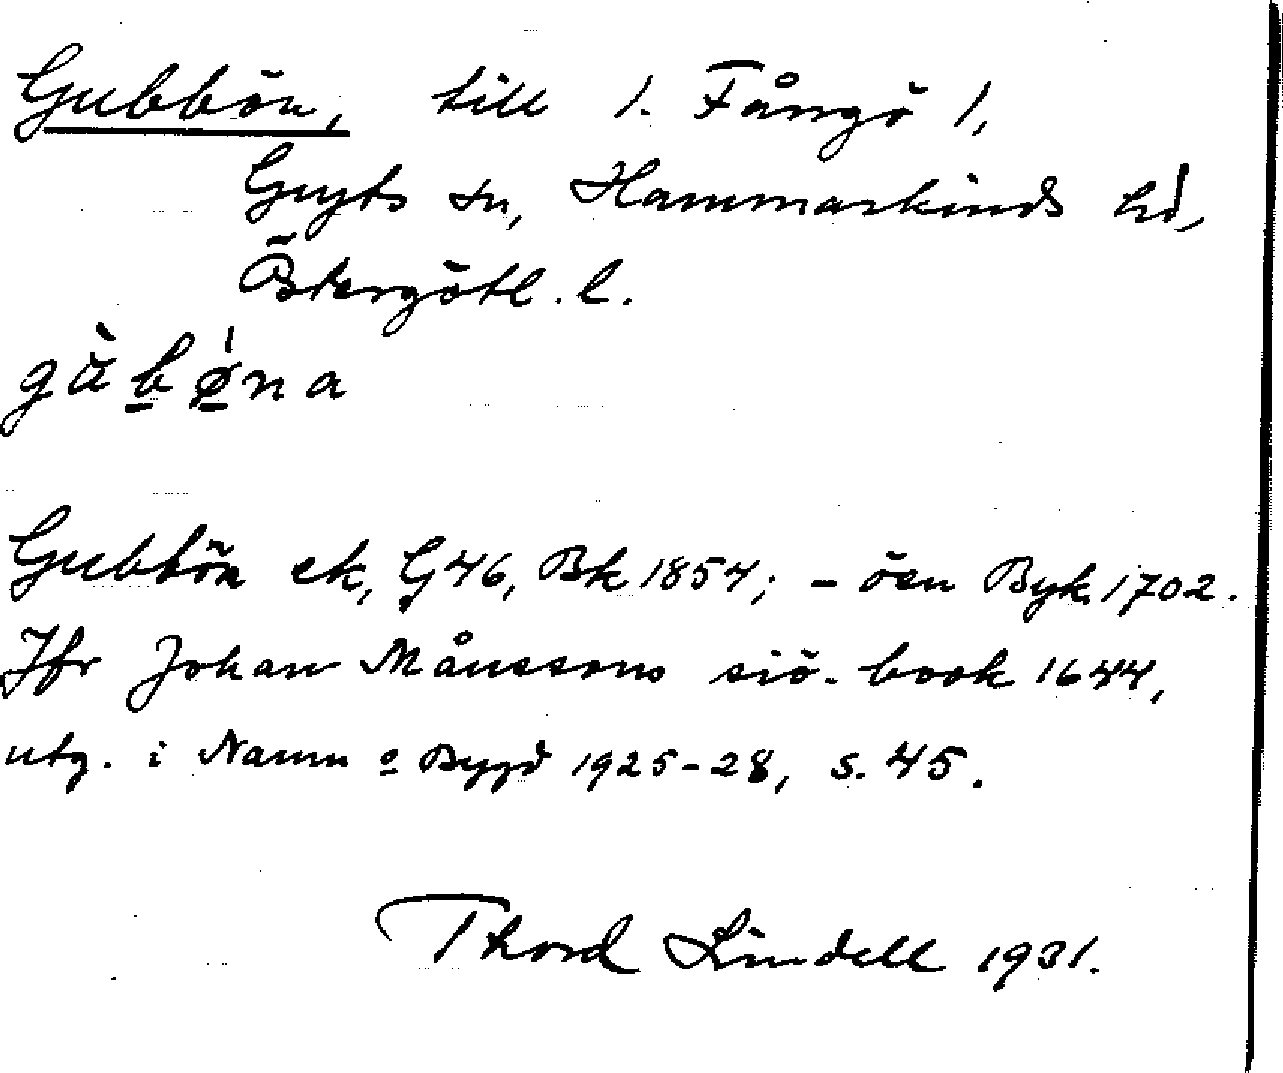 Gubbön, till 1. Fångö 1,
Gryts sn, Hammarkinds hd,
Östergötl. l.
Gubbön ek, G46, Bk 1854; - öen Byk 1702.
Jfr Johan Månssons siö-book 1644,
utg. i Namn o Bygd 1925-28, s. 45.
Thord Lindell 1931.